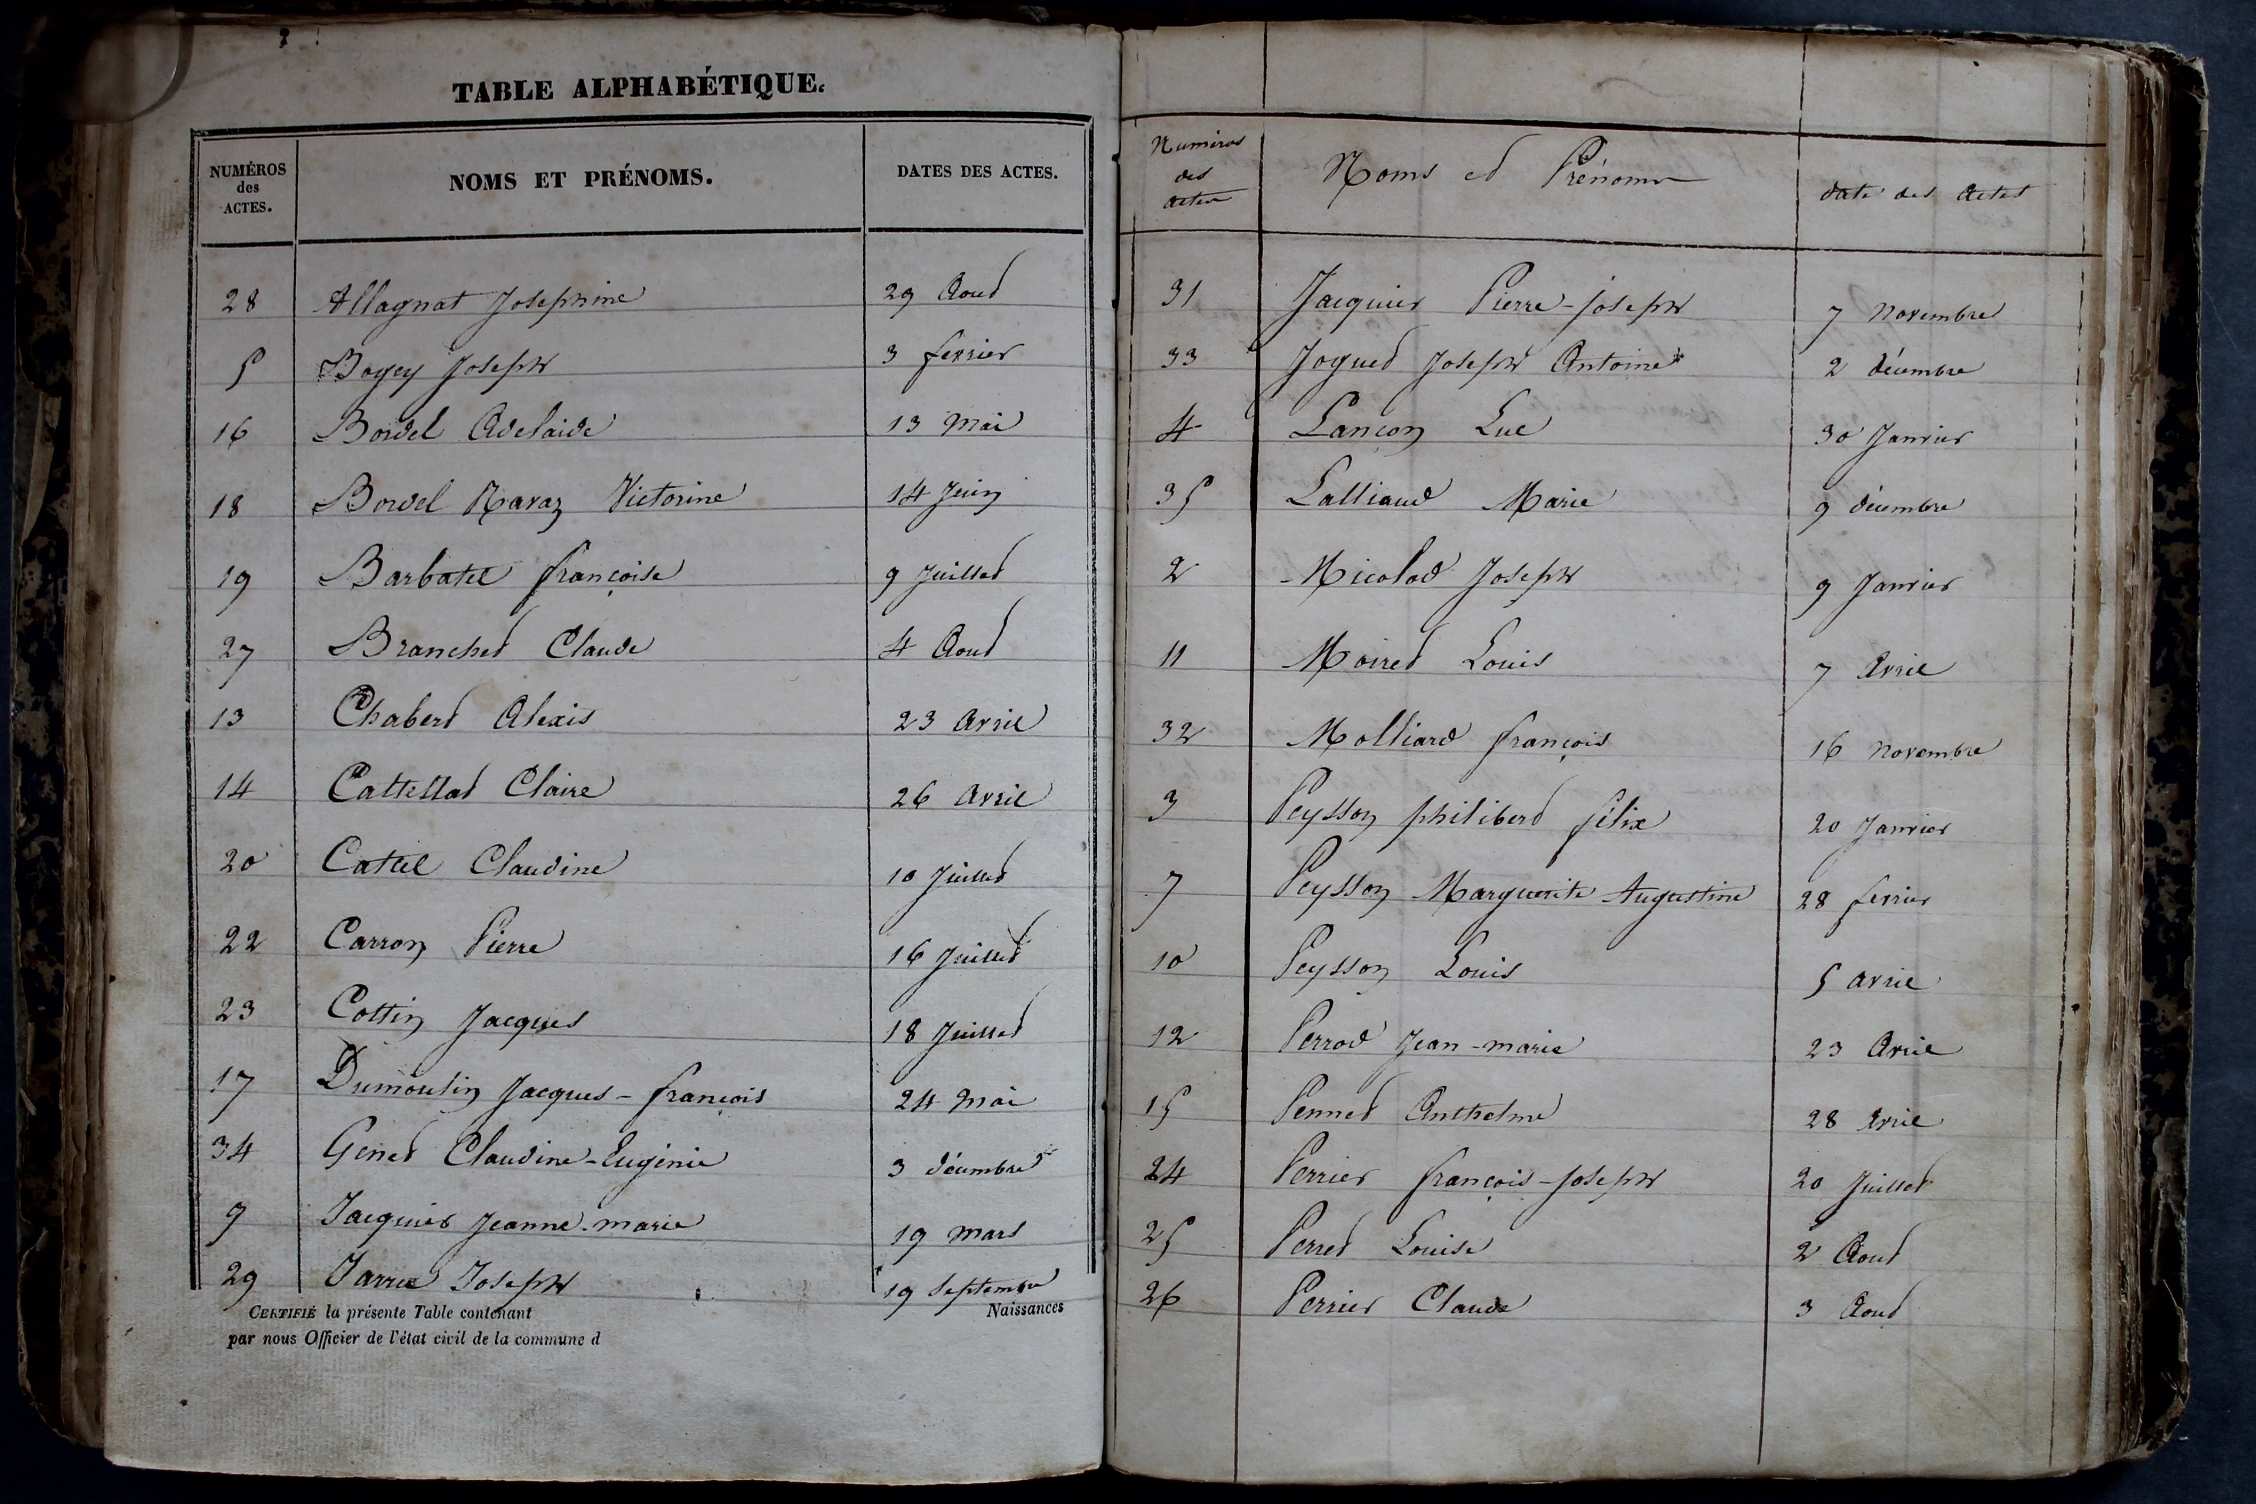 TABLE ALPHABÉTIQUE.
NUMÉROS des ACTES. NOMS ET PRÉNOMS. DATES DES ACTES.
28 Allagnat Josephine 29 Aout
5 Bogey Joseph 3 fevrier
16 Bordel Adelaide 13 Mai
18 Bordel Navaz Victorine 14 Juin
19 Barbatel françoise 9 Juillet
27 Branchet Claude 4 Aout
13 Chabert Alexis 23 Avril
14 Cattellat Claire 26 Avril
20 Catiel Claudine 10 Juillet
22 Carron Pierre 16 Juillet
23 Cottin Jacques 18 Juillet
17 Dumoulin Jacques-françois 24 Mai
34 Genet Claudine-Eugénie 3 décembre
9 Jacquier Jeanne-marie 19 Mars
29 Joseph 19 Septembre
CERTIFIÉ la présente Table contenant Naissances
par nous Officier de l'état civil de la commune d
Numéros des actes Noms et Prénoms date des actes
31 Jacquier Pierre-joseph 7 Novembre
33 Joguet Joseph Antoine 2 décembre
4 Lançon Luc 30 Janvier
35 Lalliaud Marie 9 décembre
2 Nicolod Joseph 9 Janvier
11 Moiret Louis 7 Avril
32 Molliard françois 16 Novembre
3 Peysson philibert félix 20 Janvier
7 Peysson Marguerite Augustine 28 fevrier
10 Peysson Louis 5 avril
12 Perrod Jean-marie 23 Avril
15 Pennet Anthelme 28 Avril
24 Perrier françois-Joseph 20 Juillet
25 Perret Louise 2 Aout
26 Perrier Claude 3 Aout